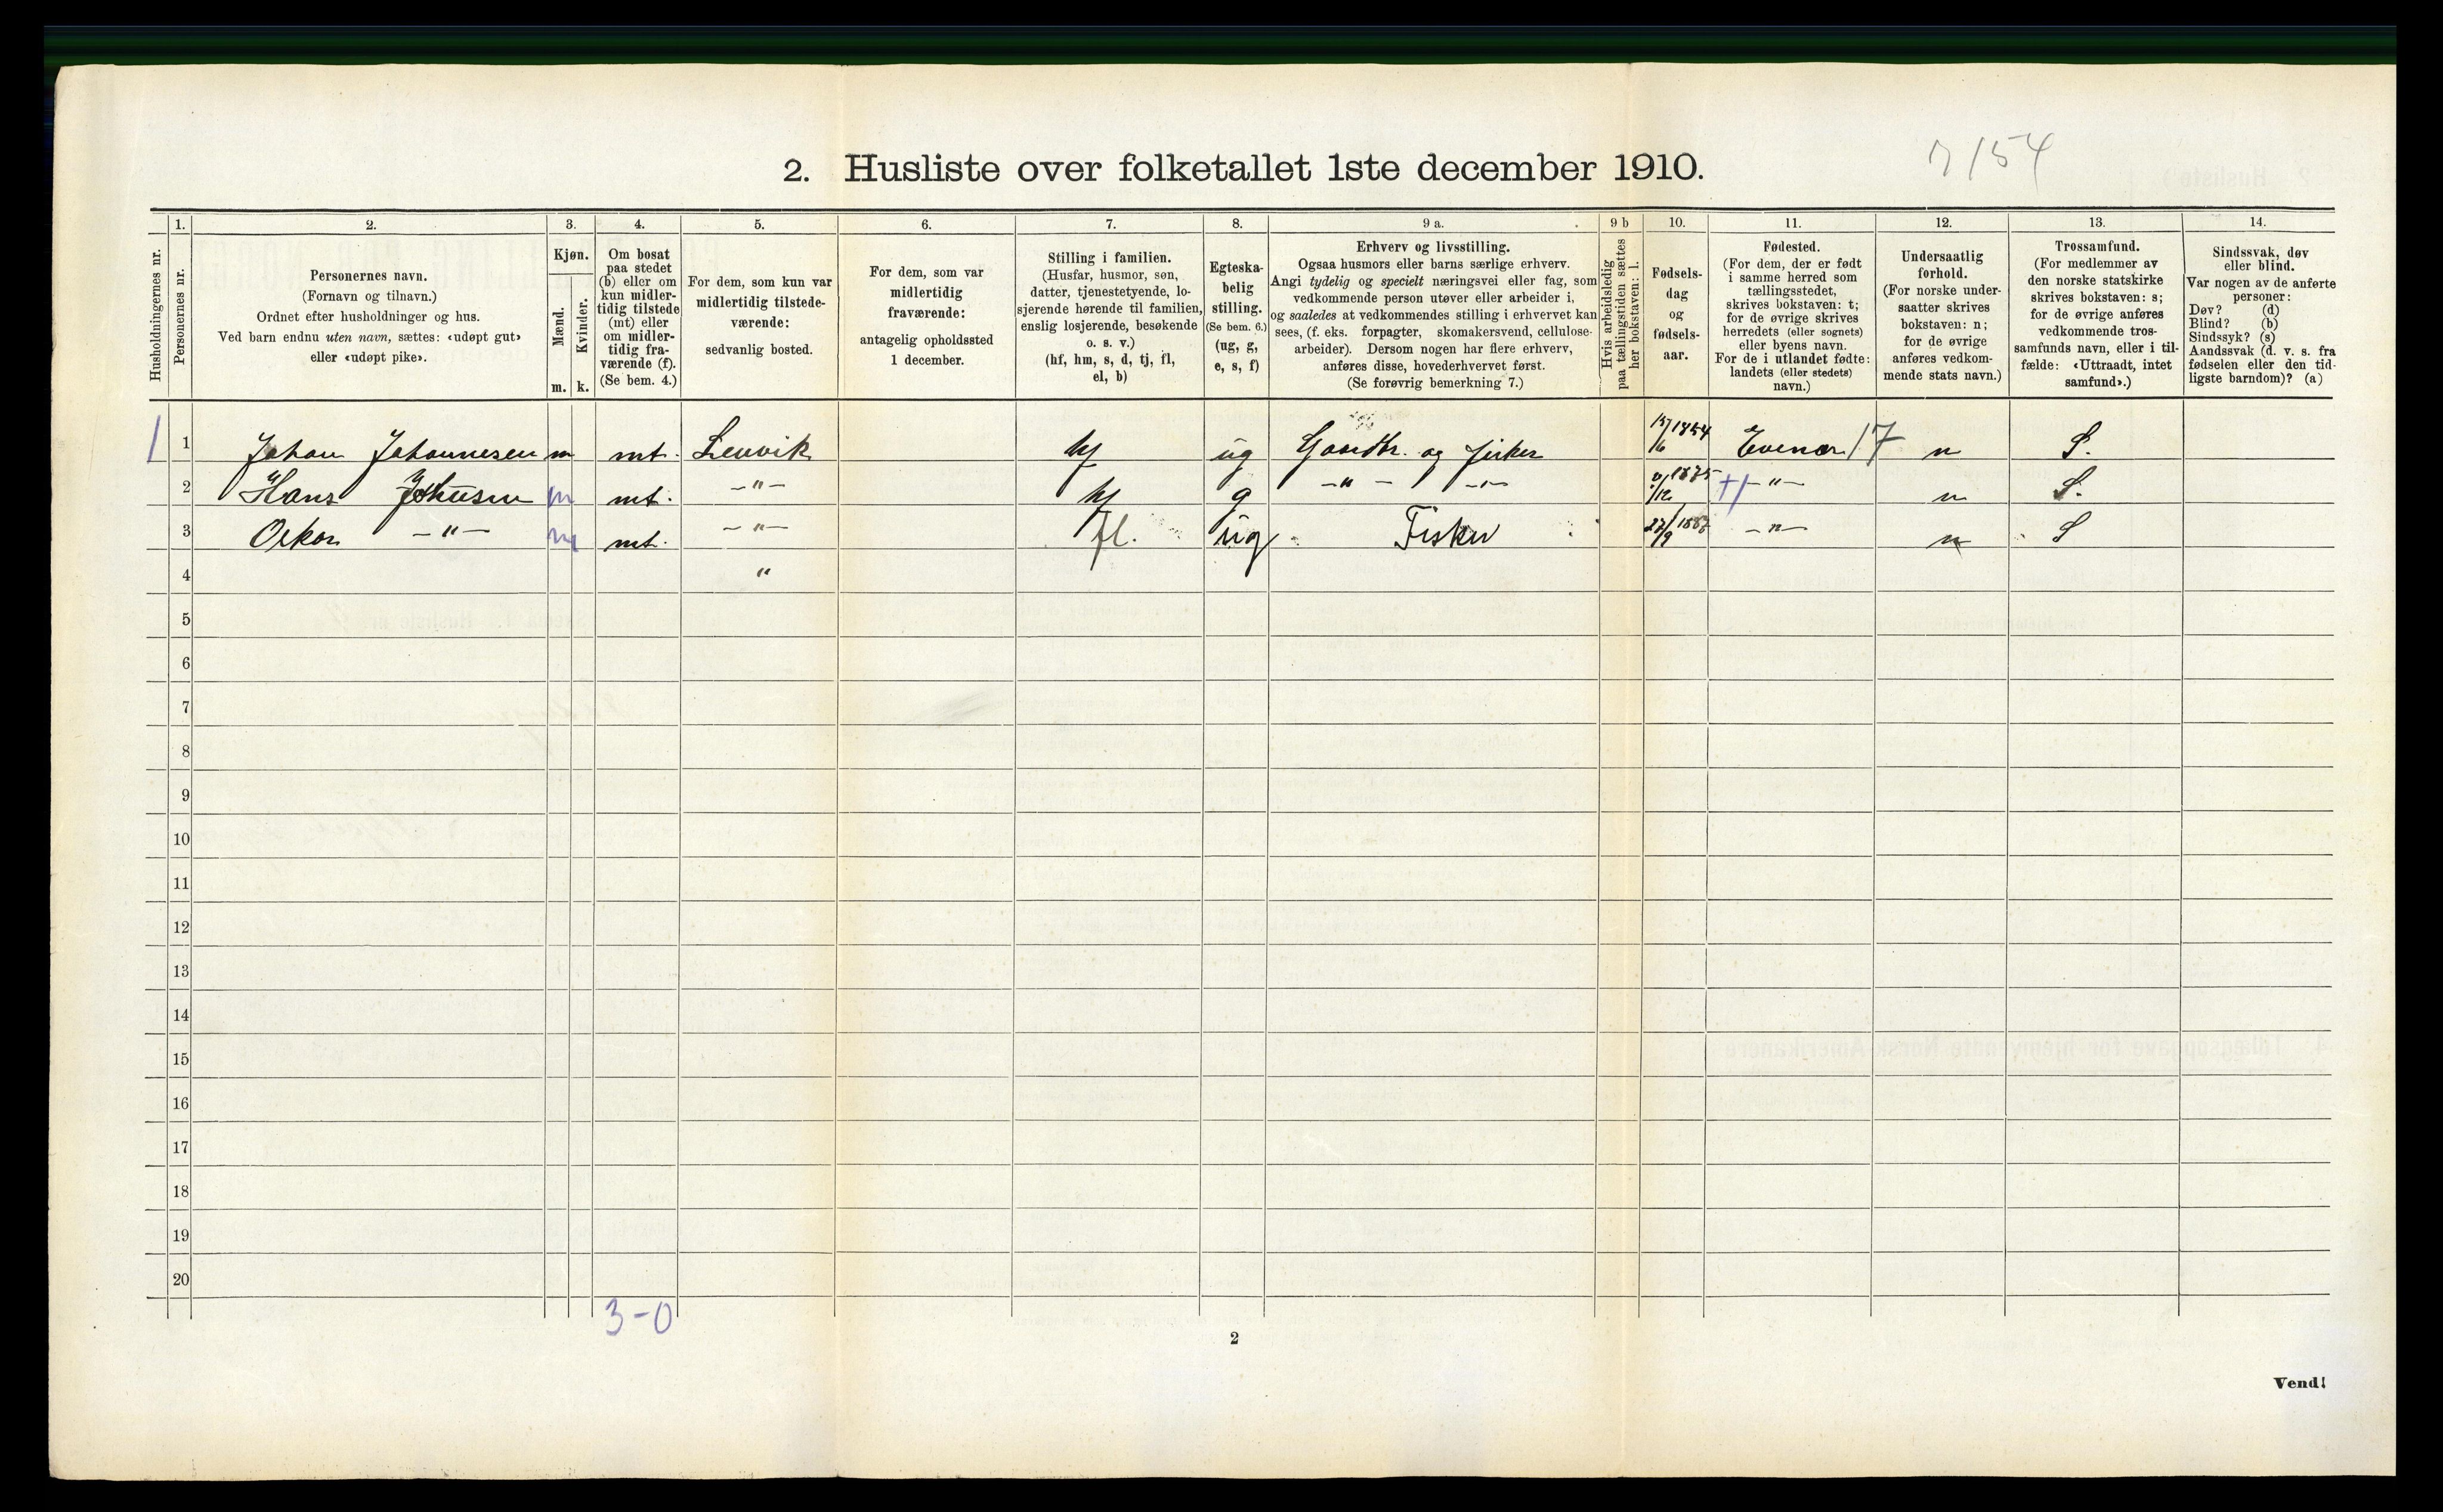 7/54
2. Husliste over folketallet 1ste december 1910.
1. 2. 3. 4. 5. 6. 7. 8. 9 a. 9 b 10. 11. 12. 13. 14.
Husholdningernes nr.
Personernes nr.
Personernes navn.
(Fornavn og tilnavn.)
Ordnet efter husholdninger og hus.
Ved barn endnu uten navn, sættes: «udøpt gut»
eller «udøpt pike».
Kjøn.
Mænd.
Kvinder.
m. k.
Om bosat
paa stedet
(b) eller om
kun midler-
tidig tilstede
(mt) eller
om midler-
tidig fra-
værende (f).
(Se bem. 4.)
For dem, som kun var
midlertidig tilstede-
værende:
sedvanlig bosted.
For dem, som var
midlertidig
fraværende:
antagelig opholdssted
1 december.
Stilling i familien.
(Husfar, husmor, søn,
datter, tjenestetyende, lo-
sjerende hørende til familien,
enslig losjerende, besøkende
o. s. v.)
(hf, hm, s, d, tj, fl,
el, b)
Egteska-
belig
stilling.
(Se bem. 6.)
(ug, g,
e, s, f)
Erhverv og livsstilling.
Ogsaa husmors eller barns særlige erhverv.
Angi tydelig og specielt næringsvei eller fag, som
vedkommende person utøver eller arbeider i,
og saaledes at vedkommendes stilling i erhvervet kan
sees, (f. eks. forpagter, skomakersvend, cellulose-
arbeider). Dersom nogen har flere erhverv,
anføres disse, hovederhvervet først.
(Se forøvrig bemerkning 7.)
Hvis arbeidsledig
paa tællingstiden sættes
her bokstaven: l.
Fødsels-
dag
og
fødsels-
aar.
Fødested.
(For dem, der er født
i samme herred som
tællingsstedet,
skrives bokstaven: t;
for de øvrige skrives
herredets (eller sognets)
eller byens navn.
For de i utlandet fødte:
landets (eller stedets)
navn.)
Undersaatlig
forhold.
(For norske under-
saatter skrives
bokstaven: n;
for de øvrige
anføres vedkom-
mende stats navn.)
Trossamfund.
(For medlemmer av
den norske statskirke
skrives bokstaven: s;
for de øvrige anføres
vedkommende tros-
samfunds navn, eller i til-
fælde: «Uttraadt, intet
samfund».)
Sindssvak, døv
eller blind.
Var nogen av de anførte
personer:
Døv? (d)
Blind? (b)
Sindssyk? (s)
Aandssvak (d. v. s. fra
fødselen eller den tid-
ligste barndom)? (a)
1 1 Johan Johannesen m mt. Lenvik hf ug Gaardbr. og fisker /6 1854 Evenæs 17 n S.
2 Hans m mt. -"- hf g -"- -"- /12 1875 -"- n S.
3 Oskar -"- m mt. -"- fl. ug Fisker 27/9 -"- n S
4 "
5
6
7
8
9
10
11
12
13
14
15
16
17
18
19
20
3-0
2
Vend!